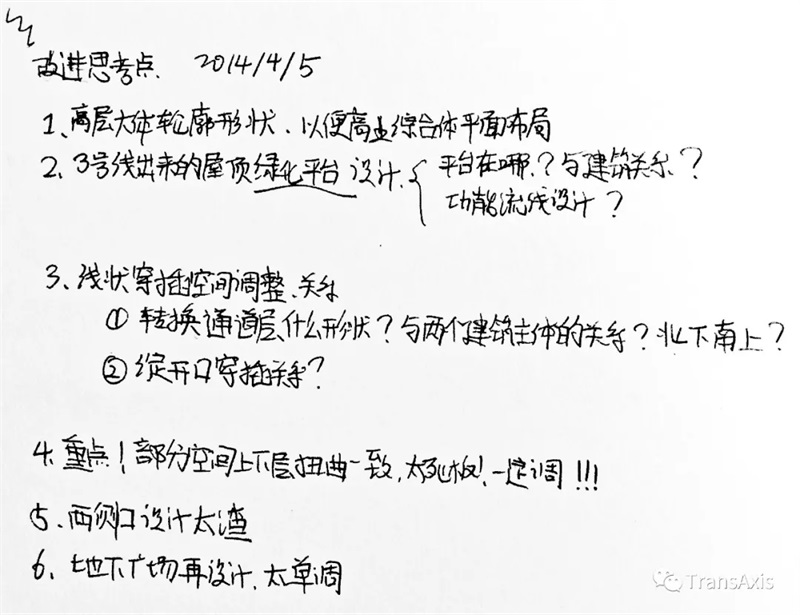 改进思考点. 2014/4/5
1、高层大体轮廓形状、以便商业综合体平面布局
2、3号线出来的屋顶绿化平台设计、{平台在哪?与建筑关系?
功能流线设计?
3、线状穿插空间调整、关系
① 转换通道层、什么形状?与两个建筑主体的关系?北下南上?
② 绽开口穿插关系?
4. 重点!部分空间上下层扭曲一致,太死板!一定调!!!
5、两侧口设计太渣
6、地下广场再设计、太单调
TransAxis